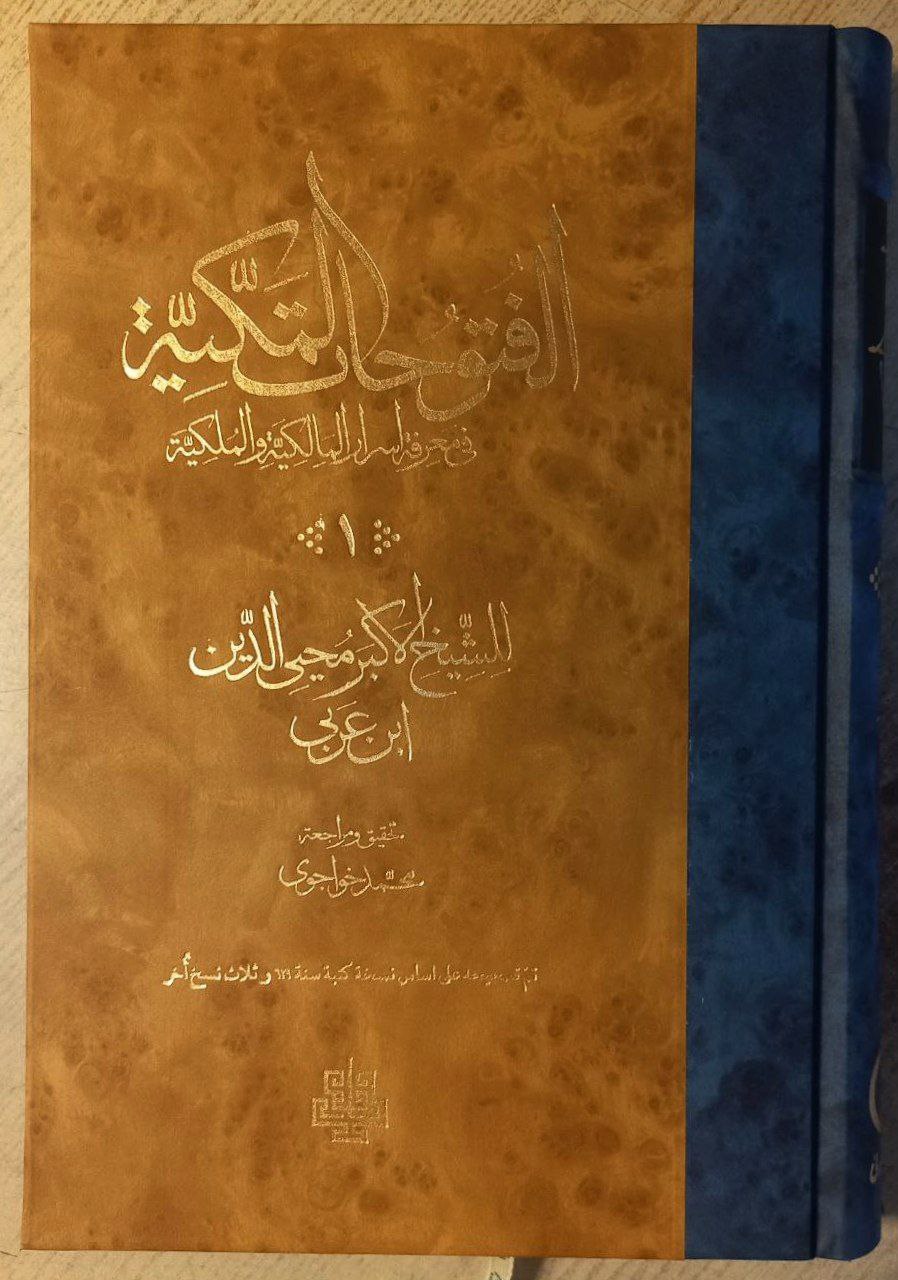 الفُتُوُحَاتُ المَكِّيَّة
في معرفة اسرار المَالِكيَّةِ وَالمُلكِيَّة
١
لِلشَّيخِ الاَكبَر مُحيِى الدّين
ابن عَرَبى
تحقيق ومراجعة
محمّد خواجوى
تمّ تصحيحه على اساس نسخة كتبة سنة ٦٢٩ و ثلاث نسخ أُخر